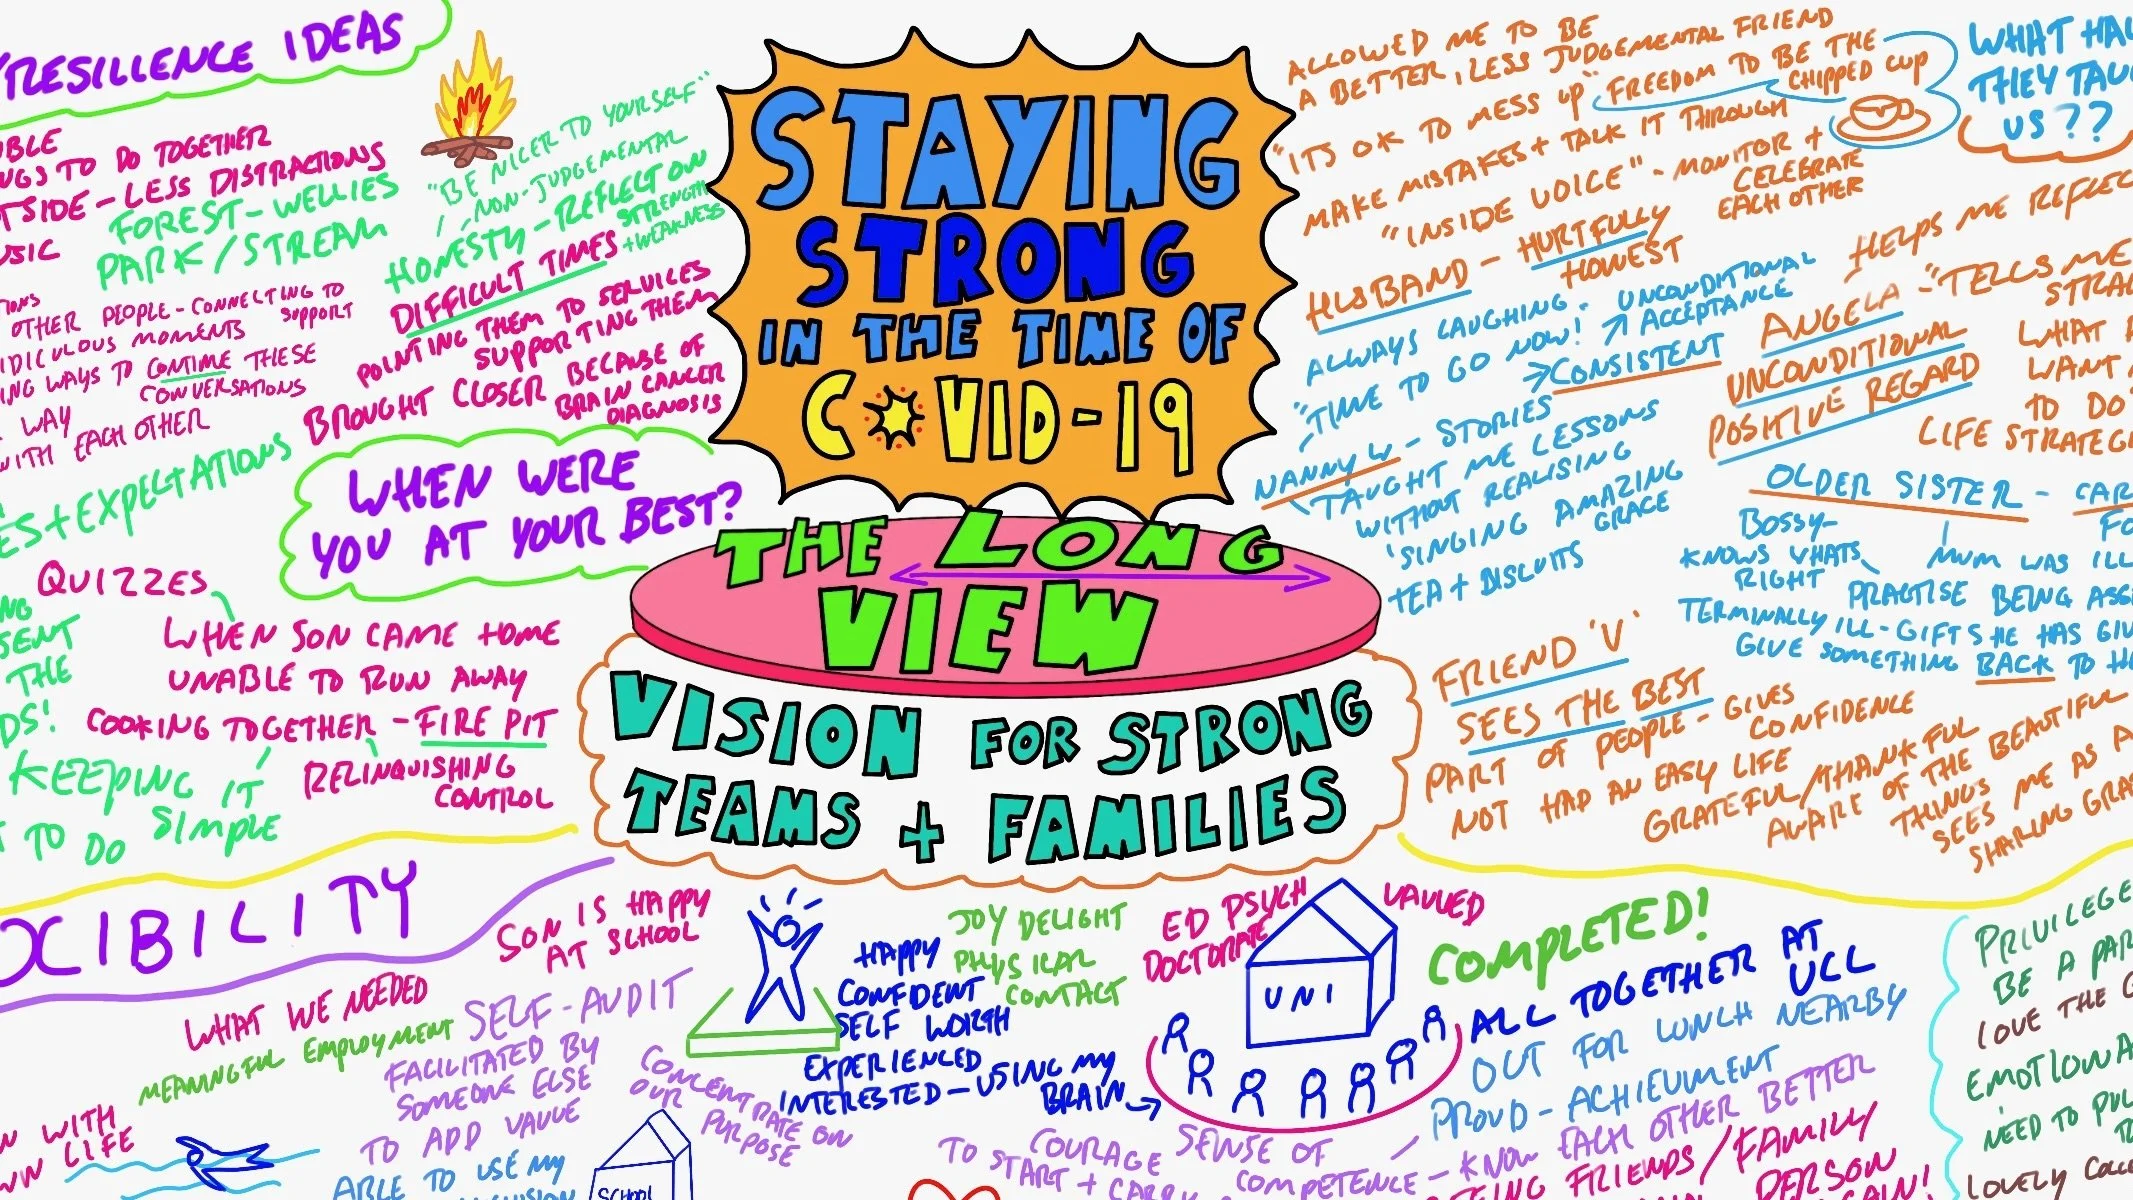 RESILIENCE IDEAS
THINGS TO DO TOGETHER
OUTSIDE - LESS DISTRACTIONS
MUSIC
FOREST - WELLIES
PARK/STREAM
OTHER PEOPLE - CONNECTING TO
SUPPORT
RIDICULOUS MOMENTS
WAYS TO CONTINUE THESE
CONVERSATIONS
WAY
WITH EACH OTHER
+ EXPECTATIONS
"BE NICER TO YOURSELF"
NON-JUDGEMENTAL
HONESTY - REFLECT ON
STRENGTH
+ WEAKNESS
DIFFICULT TIMES
POINTING THEM TO SERVICES
SUPPORTING THEM
BROUGHT CLOSER BECAUSE OF
BRAIN CANCER
DIAGNOSIS
WHEN WERE
YOU AT YOUR BEST?
QUIZZES
WHEN SON CAME HOME
UNABLE TO RUN AWAY
THE
COOKING TOGETHER - FIRE PIT
KEEPING IT
SIMPLE
RELINQUISHING
CONTROL
TO DO
STAYING
STRONG
IN THE TIME OF
COVID-19
THE LONG
VIEW
VISION FOR STRONG
TEAMS + FAMILIES
ALLOWED ME TO BE
A BETTER, LESS JUDGEMENTAL FRIEND
"IT'S OK TO MESS UP" FREEDOM TO BE THE
CHIPPED CUP
MAKE MISTAKES + TALK IT THROUGH
"INSIDE VOICE" - MONITOR +
CELEBRATE
EACH OTHER
WHAT HAVE
THEY TAUGHT
US??
HUSBAND - HURTFULLY
HONEST
HELPS ME REFLECT
ALWAYS LAUGHING - UNCONDITIONAL
ACCEPTANCE
"TIME TO GO NOW!
CONSISTENT
NANNY W - STORIES
TAUGHT ME LESSONS
WITHOUT REALISING
'SINGING AMAZING
GRACE
TEA + BISCUITS
ANGELA - "TELLS ME
UNCONDITIONAL
POSITIVE REGARD
WHAT
WANT
TO DO
LIFE STRATEG
OLDER SISTER - CAR
BOSSY -
KNOWS WHATS
RIGHT
MUM WAS ILL
PRACTISE BEING ASS
TERMINALLY ILL - GIFT SHE HAS GIV
GIVE SOMETHING BACK TO H
FRIEND 'V'
SEES THE BEST
PART OF PEOPLE - GIVES
CONFIDENCE
NOT HAD AN EASY LIFE
GRATEFUL/THANKFUL
AWARE OF THE BEAUTIFUL
THINGS
SEES ME AS A
SHARING GRA
OCIBILITY
SON IS HAPPY
AT SCHOOL
WHAT WE NEEDED
MEANINGFUL EMPLOYMENT
SELF-AUDIT
FACILITATED BY
SOMEONE ELSE
TO ADD VALUE
ABLE TO USE MY
WITH
LIFE
CONCENTRATE ON
OUR PURPOSE
SCHOOL
HAPPY
CONFIDENT
SELF WORTH
EXPERIENCED
INTERESTED - USING MY
BRAIN
JOY DELIGHT
PHYSICAL
CONTACT
ED PSYCH
DOCTORATE
UNI
VALUED
COMPLETED!
ALL TOGETHER AT
UCL
OUT FOR LUNCH NEARBY
PROUD - ACHIEVEMENT
TO COURAGE
START + CARRY
SENSE OF
COMPETENCE - KNOW EACH OTHER BETTER
FRIENDS/FAMILY
PERSON
PRIVILEGE
BE A PAR
LOVE THE
EMOTIONA
NEED TO
LOVELY COLL